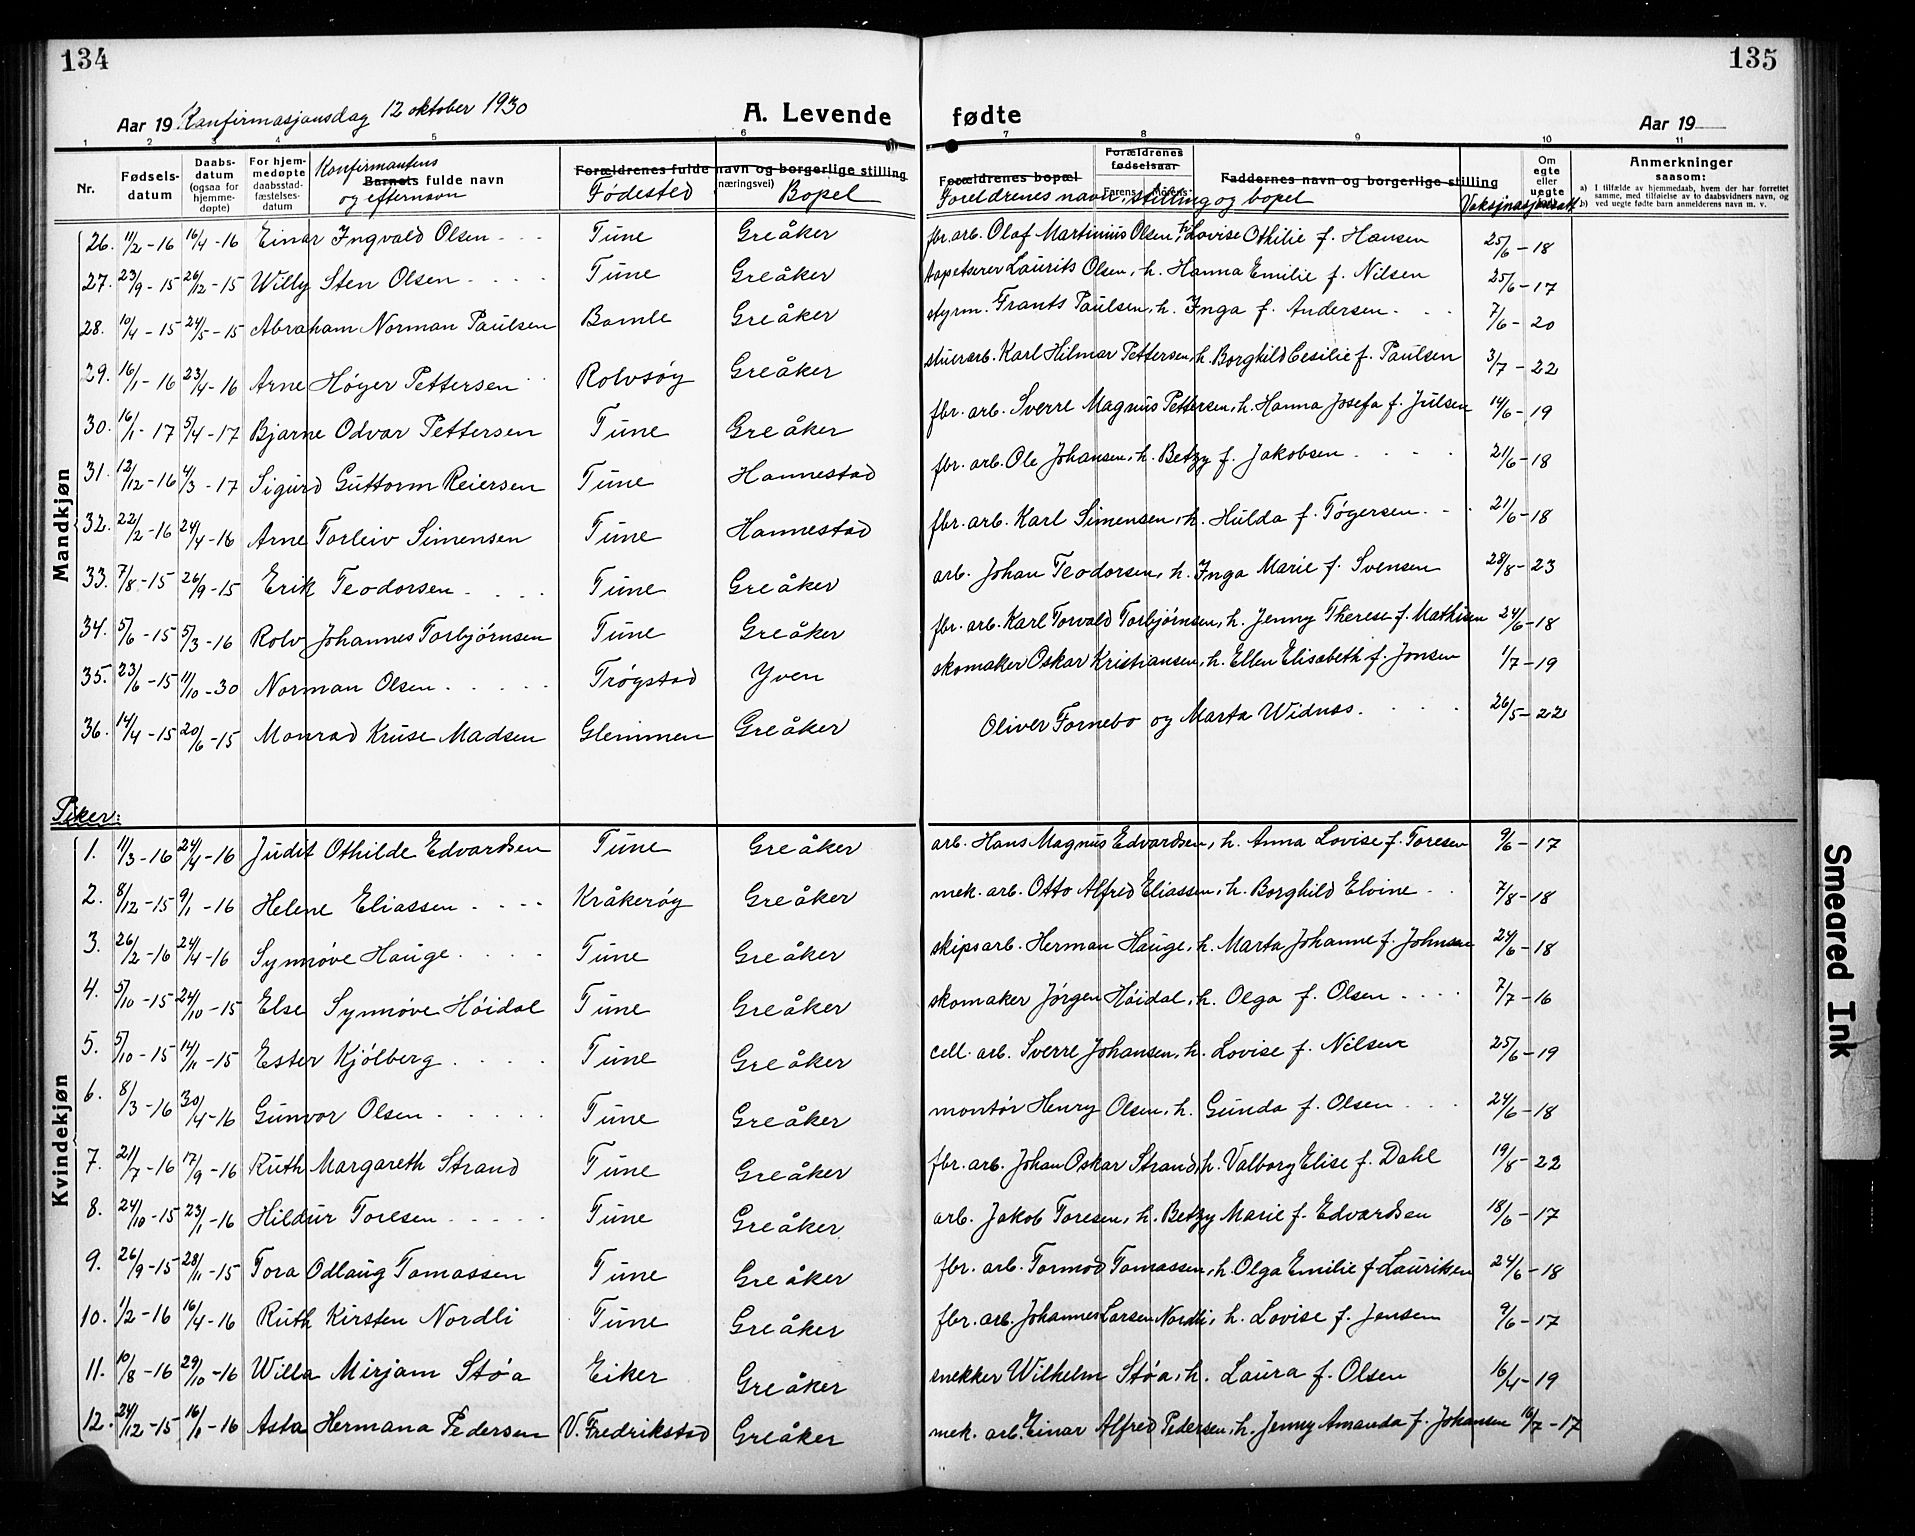 134
135
Aar 19 Konfirmasjonsdag 12 oktober 1930
A. Levende
fødte
Aar 19
1 2 3 4 5 6 7 8 9 10 11
Nr.
Fødsels-datum
Daabs-datum (ogsaa for hjemme-døpte)
For hjem-medøpte daabsstad-fæstelses-datum
Konfirmantens
Barnets fulde navn
og efternavn
Forældrenes fulde navn og borgerlige stilling
(næringsvei)
Fødested
Bopel
Forældrenes bopæl
Forældrenes fødselsaar
Farens Morens
Faddernes navn og borgerlige stilling
Foreldrenes navn, stilling og bopel
Om egte eller uegte
Vaksinasjonsatt
Anmerkninger saasom:
a) I tilfælde av hjemmedaab, hvem der har forrettet samme, med tilføielse av to daabsvidners navn, og
b) ved uegte fødte barn anmelderens navn m. v.
Mandkjøn
26. 11/2-16 16/4-16 Einar Ingvald Olsen Tune Greåker fbr. arb. Olaf Martinius Olsen, h. Lovise Othilie f. Hansen 25/6-18
27. 23/9-15 26/12-15 Willy Sten Olsen Tune Greåker tapetserer Laurits Olsen, h. Hanna Emilie f. Nilsen 25/6-17
28. 10/4-15 24/5-15 Abraham Norman Paulsen Bamle Greåker styrm. Frants Paulsen, h. Inga f. Andersen 7/6-20
29. 16/1-16 23/4-16 Arne Høyer Pettersen Rolvsøy Greåker stuerarb. Karl Hilmar Pettersen, h. Borghild Cesilie f. Paulsen 3/7-22
30. 16/1-17 5/4-17 Bjarne Odvar Pettersen Tune Greåker fbr. arb. Sverre Magnus Pettersen, h. Hanna Josefa f. Julsen 14/6-19
31. 12/12-16 4/3-17 Sigurd Guttorm Reiersen Tune Hannestad fbr. arb. Ole Johansen, h. Betzy f. Jakobsen 21/6-18
32. 22/2-16 24/4-16 Arne Torleiv Simensen Tune Hannestad fbr. arb. Karl Simensen, h. Hulda f. Tøgersen 21/6-18
33. 7/8-15 26/9-15 Erik Teodorsen Tune Greåker arb. Johan Teodorsen, h. Inga Marie f. Svensen 28/8-23
34. 5/6-15 5/3-16 Rolv Johannes Torbjørnsen Tune Greåker fbr. arb. Karl Torvald Torbjørnsen, h. Jenny Therese f. Mathisen 24/6-18
35. 23/6-15 11/10-30 Norman Olsen Trøgstad Yven skomaker Oskar Kristiansen, h. Ellen Elisabeth f. Jonsen 1/7-19
36. 14/4-15 20/6-15 Monrad Kruse Madsen Glemmen Greåker Oliver Fornebo og Marta Widnes 26/5-22
Piker:
Kvindekjøn
1. 11/3-16 24/4-16 Judit Othilde Edvardsen Tune Greåker arb. Hans Magnus Edvardsen, h. Anna Lovise f. Toresen 9/6-17
2. 8/12-15 9/1-16 Helene Eliassen Kråkerøy Greåker mek. arb. Otto Alfred Eliassen, h. Borghild Elvine 7/8-18
3. 26/2-16 24/4-16 Synnøve Hauge Tune Greåker skipsarb. Herman Hauge, h. Marta Johanne f. Johnsen 24/6-18
4. 5/10-15 24/10-15 Else Synnøve Høidal Tune Greåker skomaker Jørgen Høidal, h. Olga f. Olsen 7/7-16
5. 5/10-15 14/11-15 Ester Kjølberg Tune Greåker cell. arb. Sverre Johansen, h. Lovise f. Nilsen 25/6-19
6. 8/3-16 30/4-16 Gunvor Olsen Tune Greåker montør Henry Olsen, h. Gunda f. Olsen 24/6-18
7. 21/7-16 17/9-16 Ruth Margareth Strand Tune Greåker fbr. arb. Johan Oskar Strand, h. Valborg Elise f. Dahl 19/8-22
8. 24/10-15 23/1-16 Hildur Toresen Tune Greåker arb. Jakob Toresen, h. Betzy Marie f. Edvardsen 18/6-17
9. 26/9-15 28/11-15 Tora Odlaug Tomassen Tune Greåker fbr. arb. Tormod Tomassen, h. Olga Emilie f. Lauriksen 24/6-18
10. 1/2-16 16/4-16 Ruth Kirsten Nordli Tune Greåker fbr. arb. Johannes Larsen Nordli, h. Lovise f. Jensen 9/6-17
11. 10/8-16 29/10-16 Willa Mirjam Støa Eiker Greåker snekker Wilhelm Støa, h. Laura f. Olsen 16/4-19
12. 24/12-15 16/1-16 Asta Hermana Pedersen V. Fredrikstad Greåker mek. arb. Einar Alfred Pedersen, h. Jenny Amanda f. Johansen 16/7-17
Smeared Ink